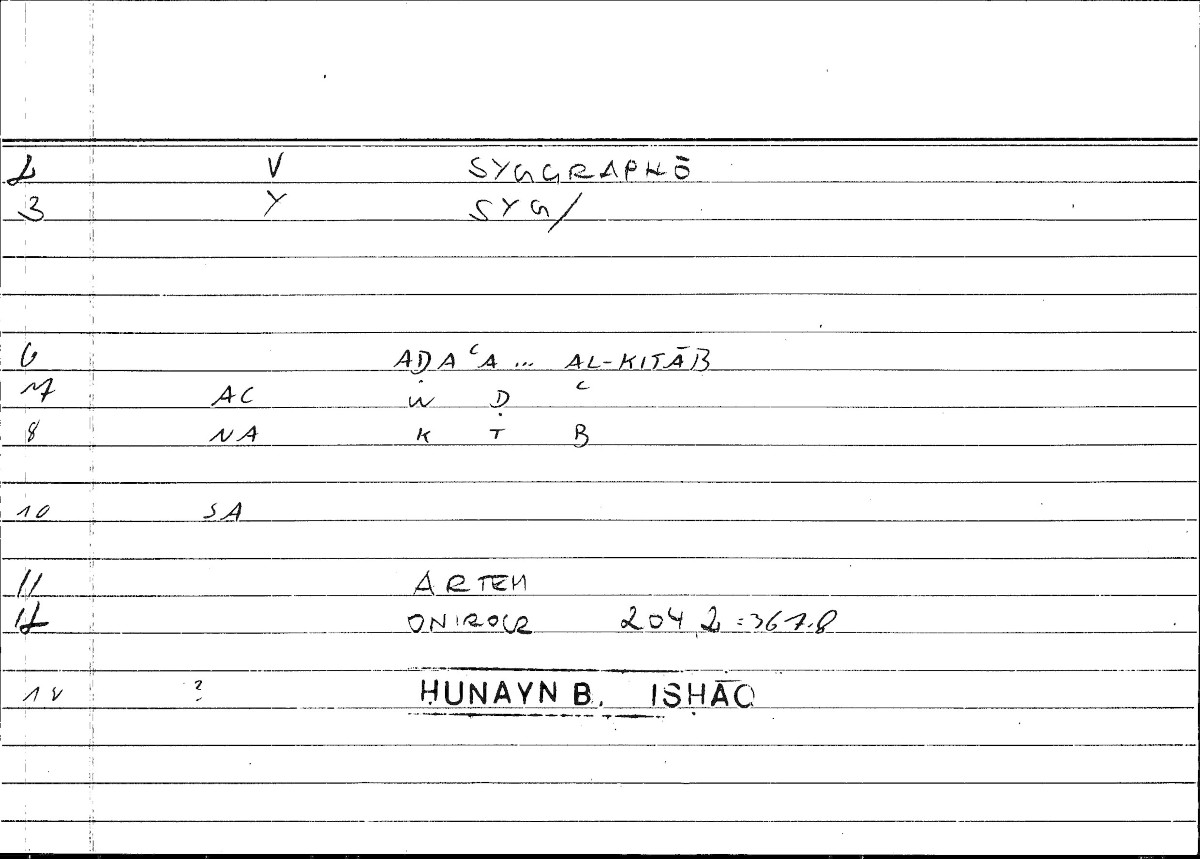 2 V SYGGRAPHŌ
3 Y SYG/
6 AḌAʿA ... AL-KITĀB
7 AC W Ḍ ʿ
8 NA K T B
10 SA
11 ARTEM
12 ONIROCR 204,2 = 367.8
14 ? ḤUNAYN B. ISḤĀQ